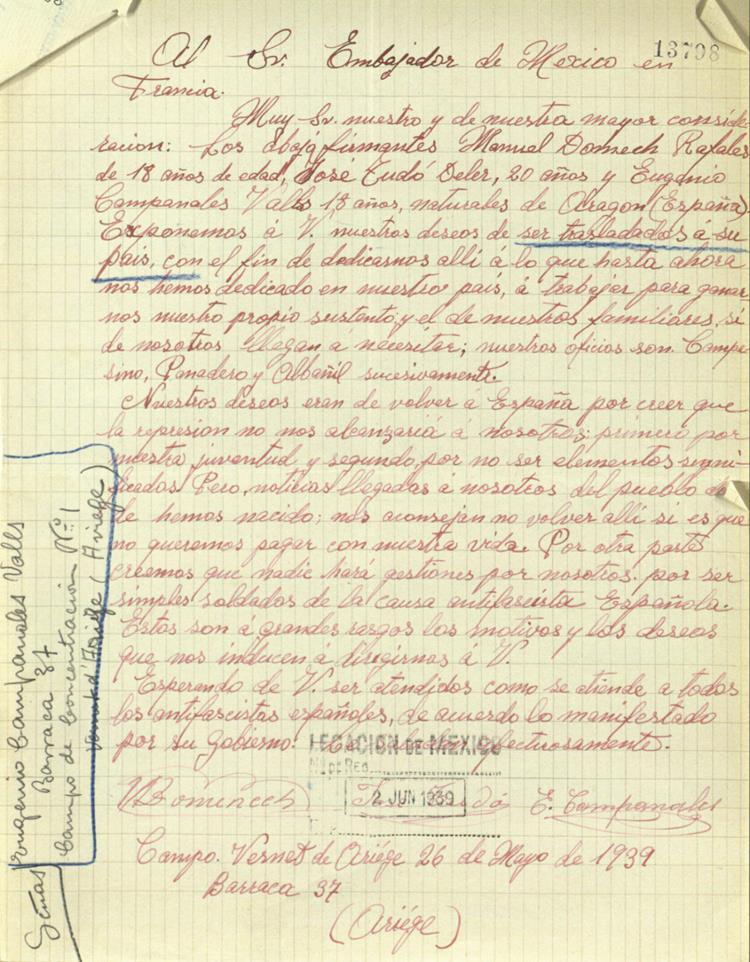 13798
Al Sr. Embajador de Mexico en
Francia.
Muy Sr. nuestro y de nuestra mayor conside-
racion: Los abajo firmantes Manuel Domech Rafales
de 18 años de edad, José Tudó Deler, 20 años y Eugenio
Campanales Valls 18 años, naturales de Aragon (España)
Exponemos á V. nuestros deseos de ser trasladados á su
pais, con el fin de dedicarnos allí a lo que hasta ahora
nos hemos dedicado en nuestro pais, á trabajar para ganar-
nos nuestro propio sustento, y el de nuestros familiares, si
de nosotros llegan a necesitar; nuestros oficios son. Campe-
sino, Panadero y Albañil sucesivamente.
Nuestros deseos eran de volver a España por creer que
la represion no nos alcanzaría á nosotros; primero por
nuestra juventud y segundo, por no ser elementos signi-
ficados Pero, noticias llegadas á nosotros del pueblo
de hemos nacido; nos aconsejan no volver allí si es que
no queremos pagar con nuestra vida. Por otra parte
creemos que nadie hará gestiones por nosotros. por ser
simples soldados de la causa antifascista Española.
Estos son á grandes rasgos los motivos y los deseos
que nos inducen á dirigirnos á V.
Esperando de V. ser atendidos como se atiende a todos
los antifascistas españoles, de acuerdo lo manifestado
por su gobierno. afectuosamente.
LEGACION DE MEXICO
Nº DE REG.
2 JUN 1939
Domenech Tudó E. Campanales
Campo. Vernet de Ariége 26 de Mayo de 1939
Barraca 37
(Ariége)
Señas
Eugenio Campanales Valls
Barraca 37
Campo de Concentracion Nº 1
Vernet d'Ariége (Ariege)